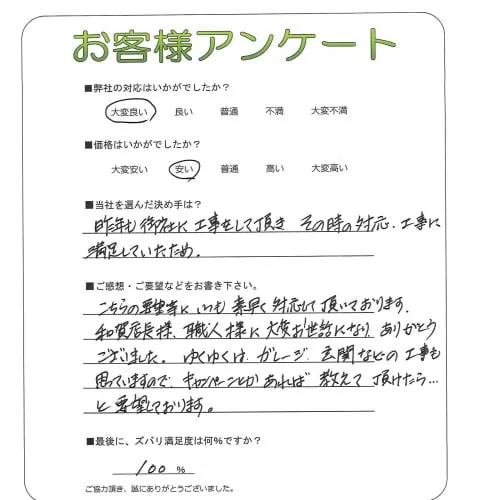 お客様アンケート
■弊社の対応はいかがでしたか？
大変良い 良い 普通 不満 大変不満
■価格はいかがでしたか？
大変安い 安い 普通 高い 大変高い
■当社を選んだ決め手は？
昨年も御社に工事をして頂き その時の対応、工事に
満足していたため。
■ご感想・ご要望などをお書き下さい。
こちらの要望等にいつも素早く対応して頂いております。
和賀店長様、職人様に大変お世話になり ありがとう
ございました。ゆくゆくは、ガレージ、玄関などの工事も
思っていますので、キャンペーンとかあれば 教えて頂けたら…
と要望しております。
■最後に、ズバリ満足度は何％ですか？
100 %
ご協力頂き、誠にありがとうございました。